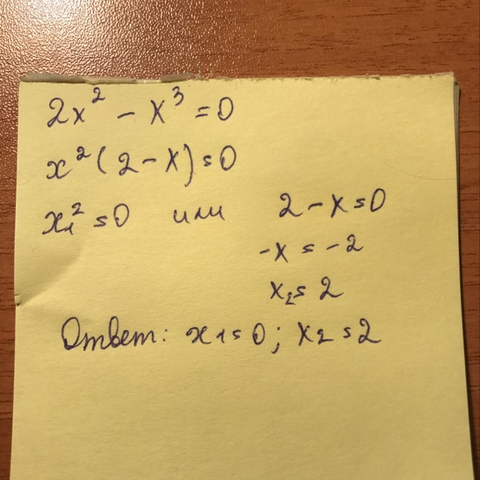 2x² - x³ = 0
x²(2 - x) = 0
x₁² = 0 или 2 - x = 0
-x = -2
x₂ = 2
Ответ: x₁ = 0; x₂ = 2